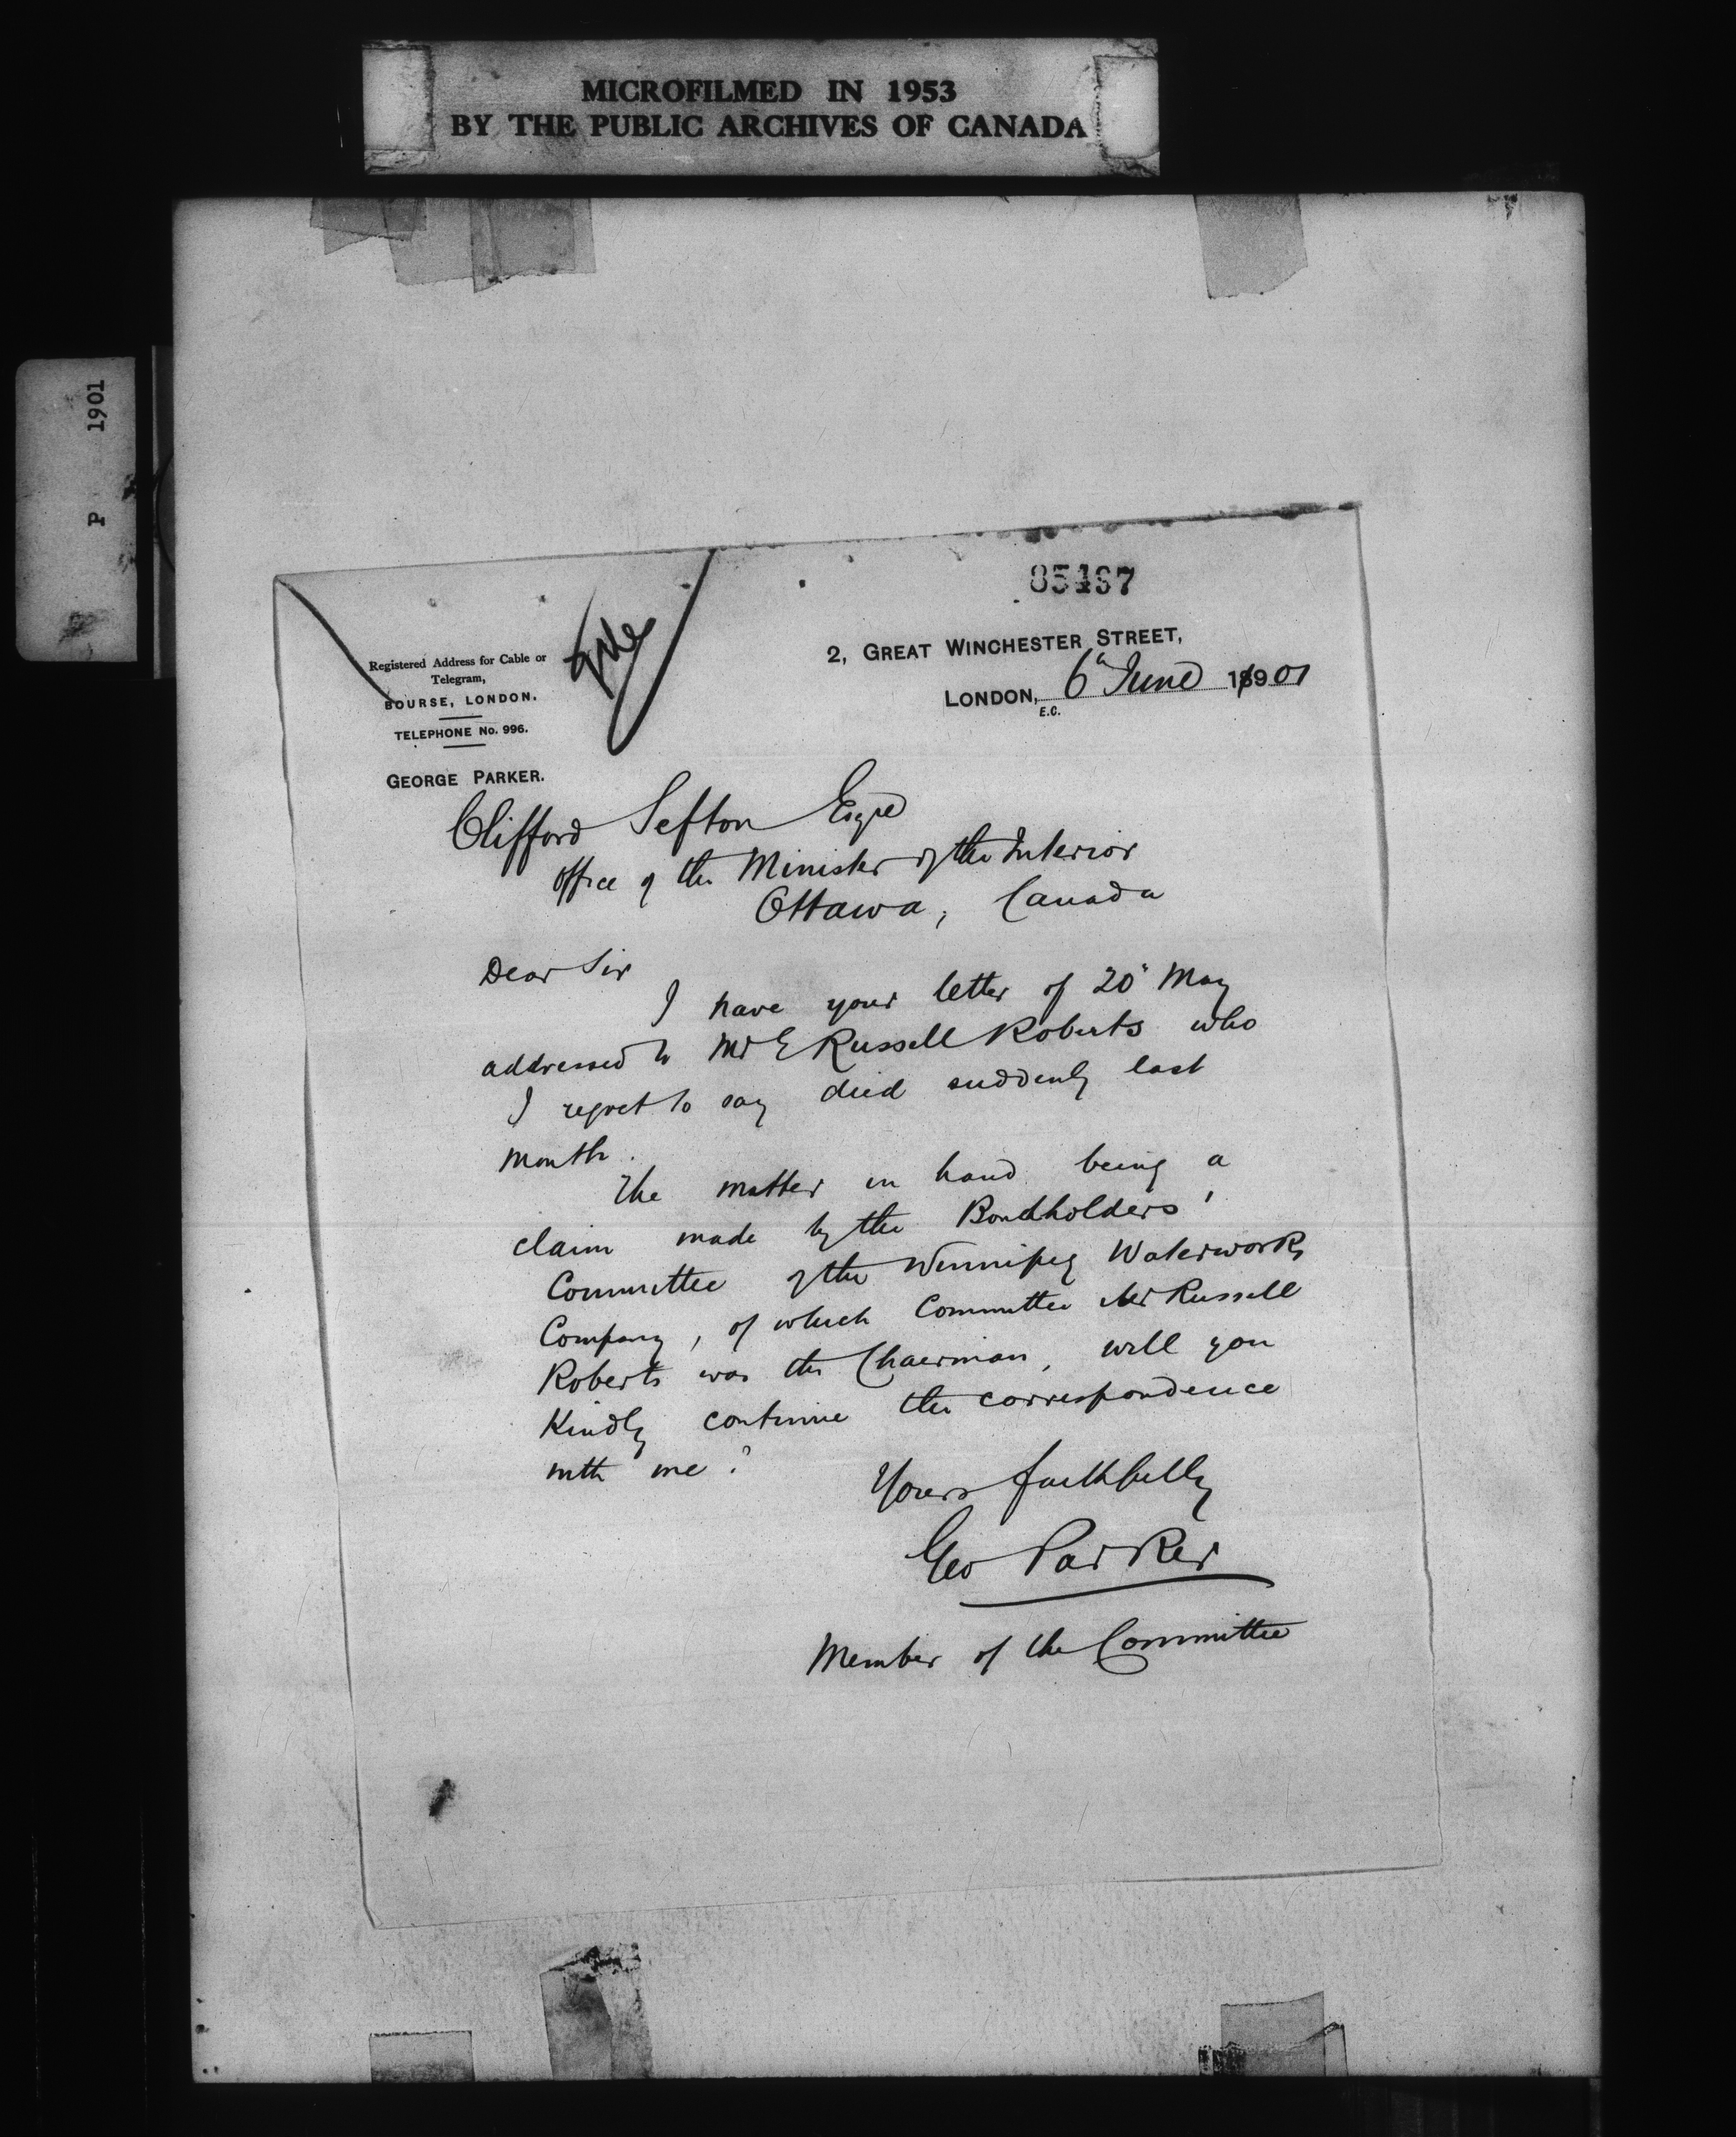 MICROFILMED IN 1953
BY THE PUBLIC ARCHIVES OF CANADA
P 1901
85467
Registered Address for Cable or
Telegram,
BOURSE, LONDON.
TELEPHONE No. 996.
GEORGE PARKER.
file
2, GREAT WINCHESTER STREET,
LONDON, 6" June 18901
E.C.
Clifford Sefton Esqre
Office of the Minister of the Interior
Ottawa, Canada
Dear Sir
I have your letter of 20" May
addressed to Mr E Russell Roberts who
I regret to say died suddenly last
month.
The matter in hand being a
claim made by the Bondholders'
Committee of the Winnipeg Waterworks
Company, of which Committee Mr Russell
Roberts was the Chairman, will you
kindly continue the correspondence
with me?
Yours faithfully
Geo Parker
Member of the Committee